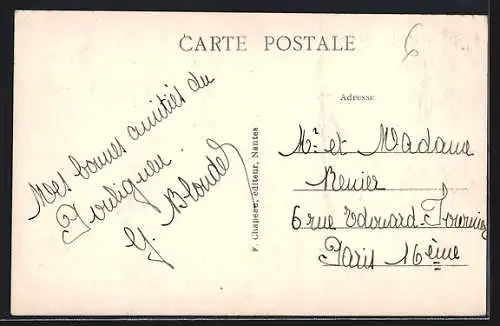 CARTE POSTALE
6
Adresse
Mes bonnes amitiés du
Pouliguen
G. Blondel
F. Chapeau, éditeur, Nantes
Mr et Madame
Renier
6 rue Edouard-Fournier
Paris 16ème